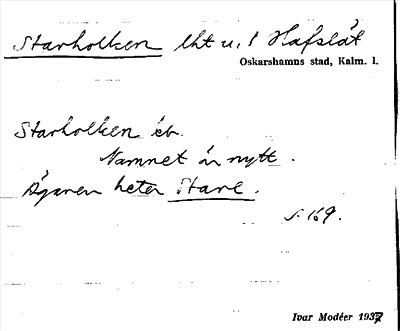 Starholken lht u. t Hafslät
Oskarshamns stad, Kalm. l.
Starholken eb.
Namnet är nytt.
Ägaren heter Stare.
s. 169.
Ivar Modéer 1937